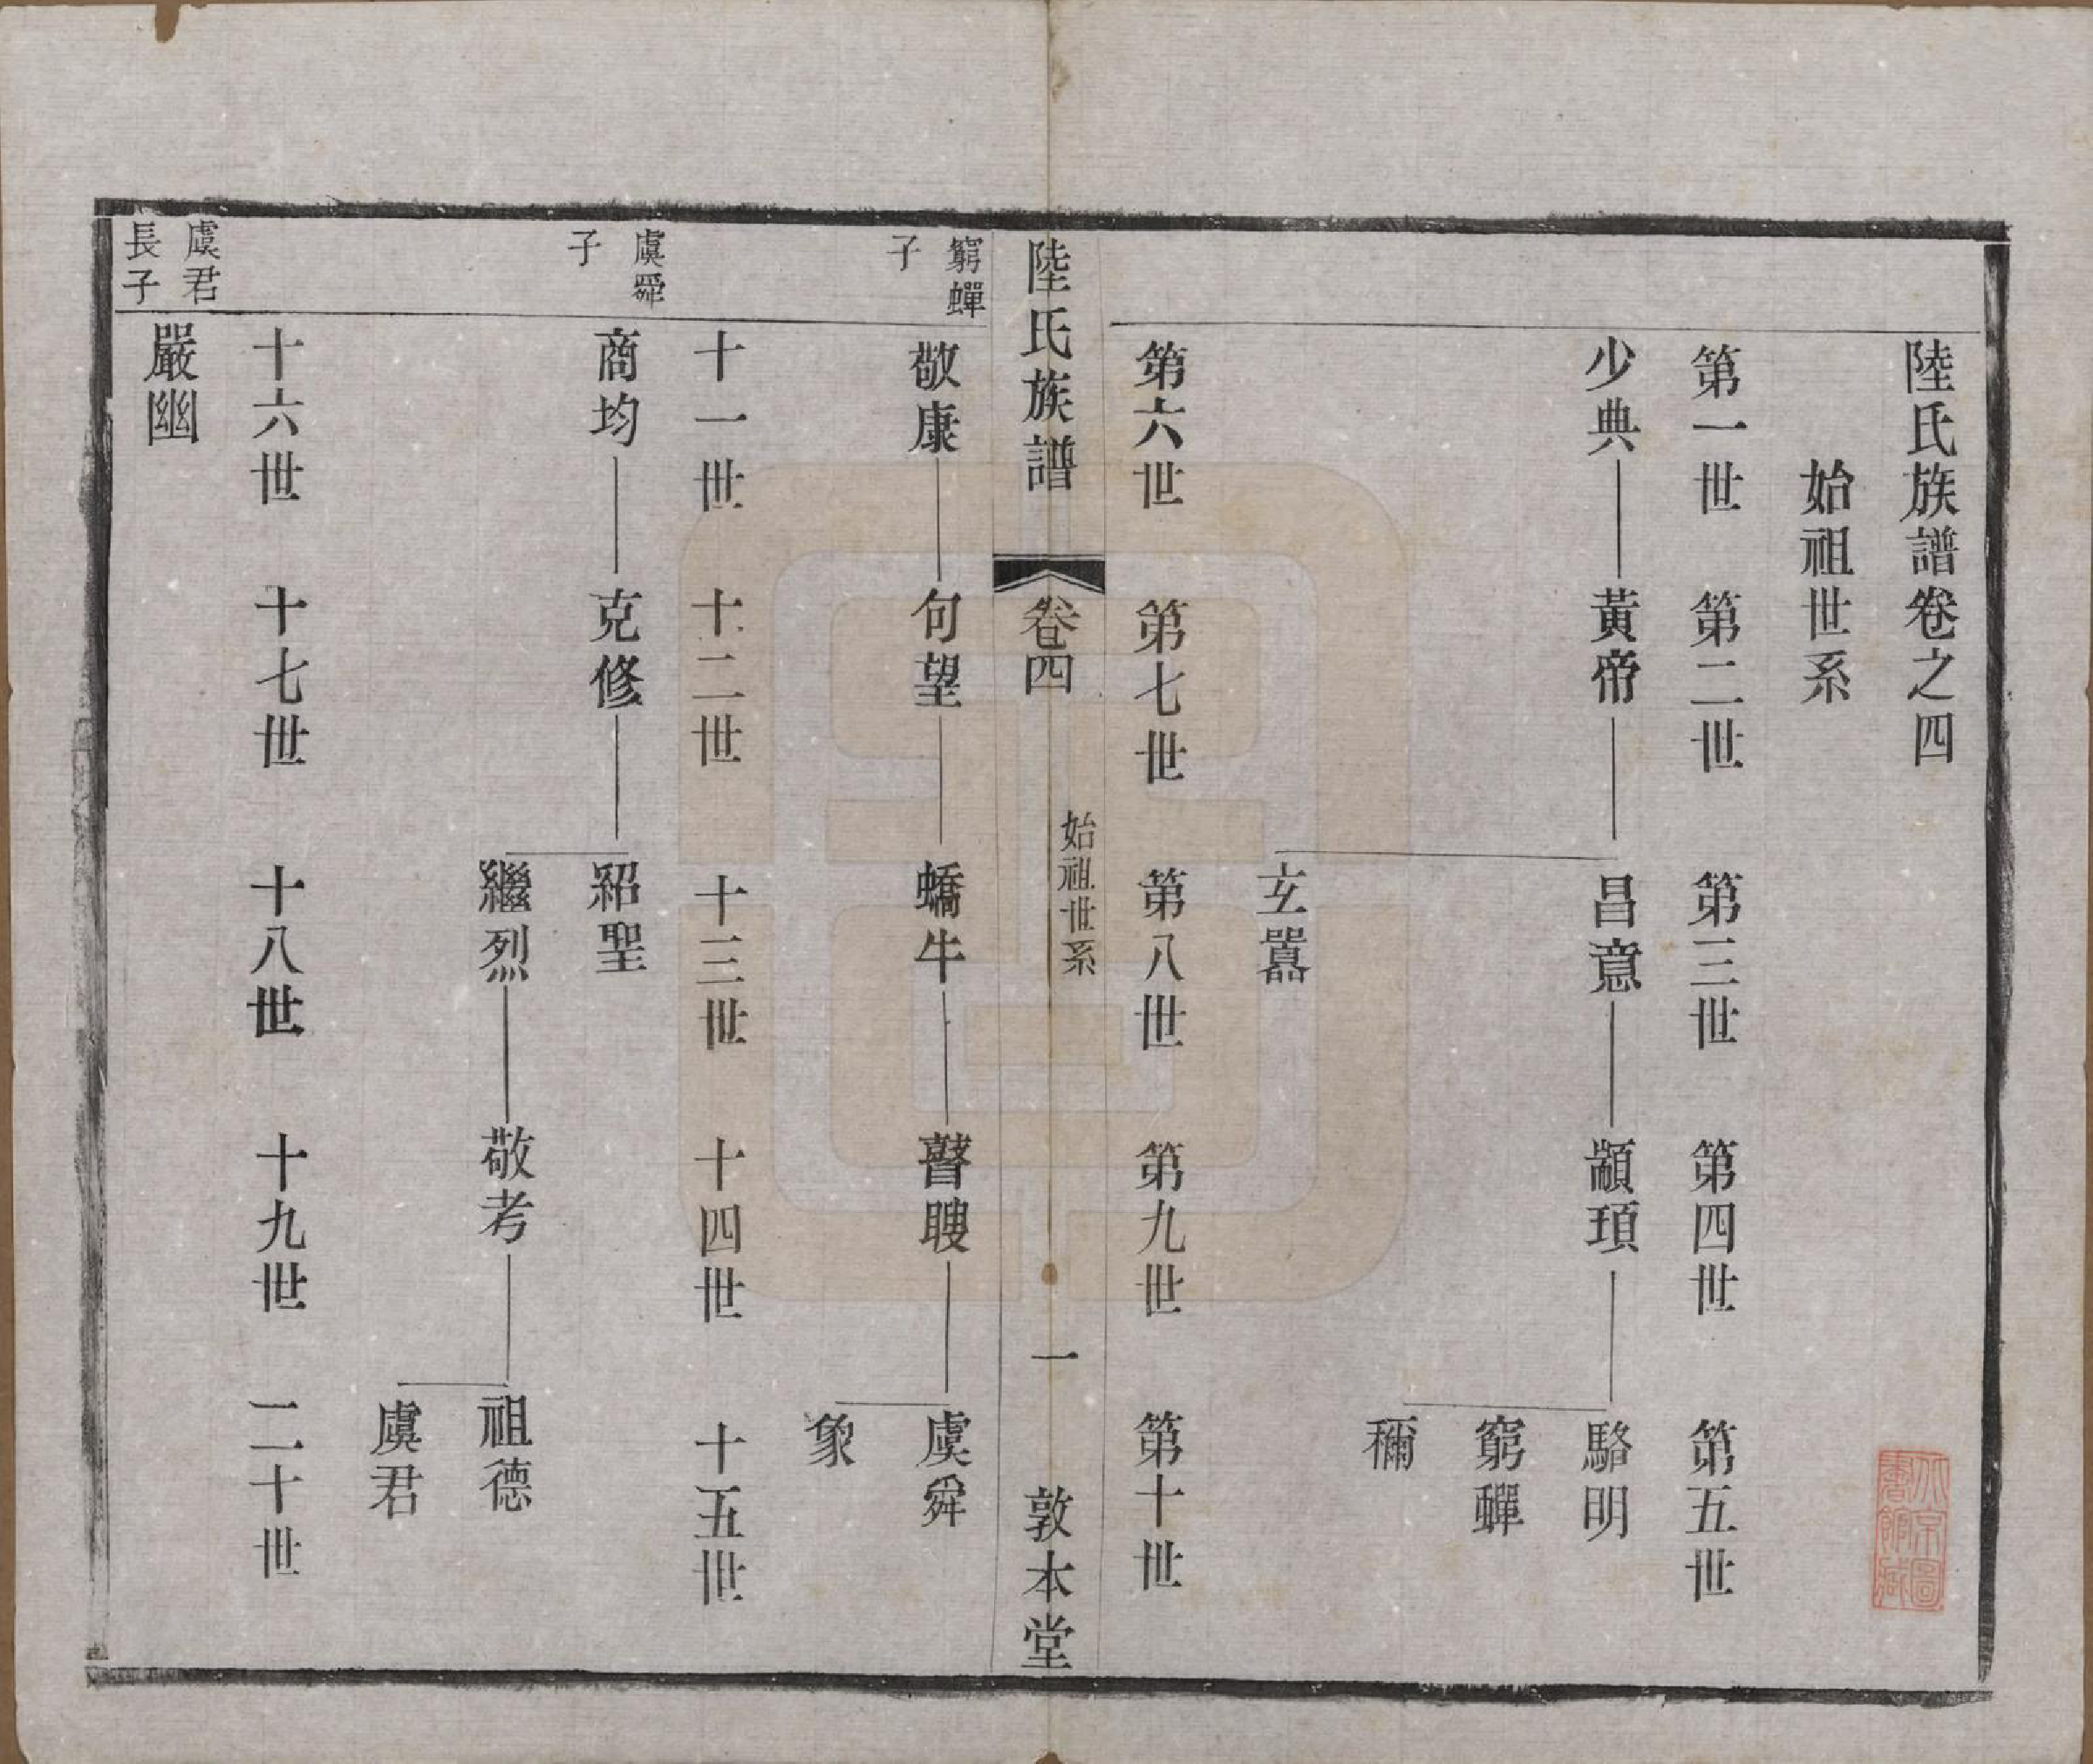 陸氏族譜卷之四
始祖世系
第一世 第二世 第三世 第四世 第五世
少典 黃帝 昌意 顓頊 駱明
窮蟬
禰
玄囂
第六世 第七世 第八世 第九世 第十世
陸氏族譜 卷四 始祖世系 一 敦本堂
窮蟬
子
敬康 句望 蟜牛 瞽瞍 虞舜
象
十一世 十二世 十三世 十四世 十五世
虞舜
子
商均 克修 紹聖
繼烈 敬考 祖德
虞君
十六世 十七世 十八世 十九世 二十世
虞君
長子
嚴幽